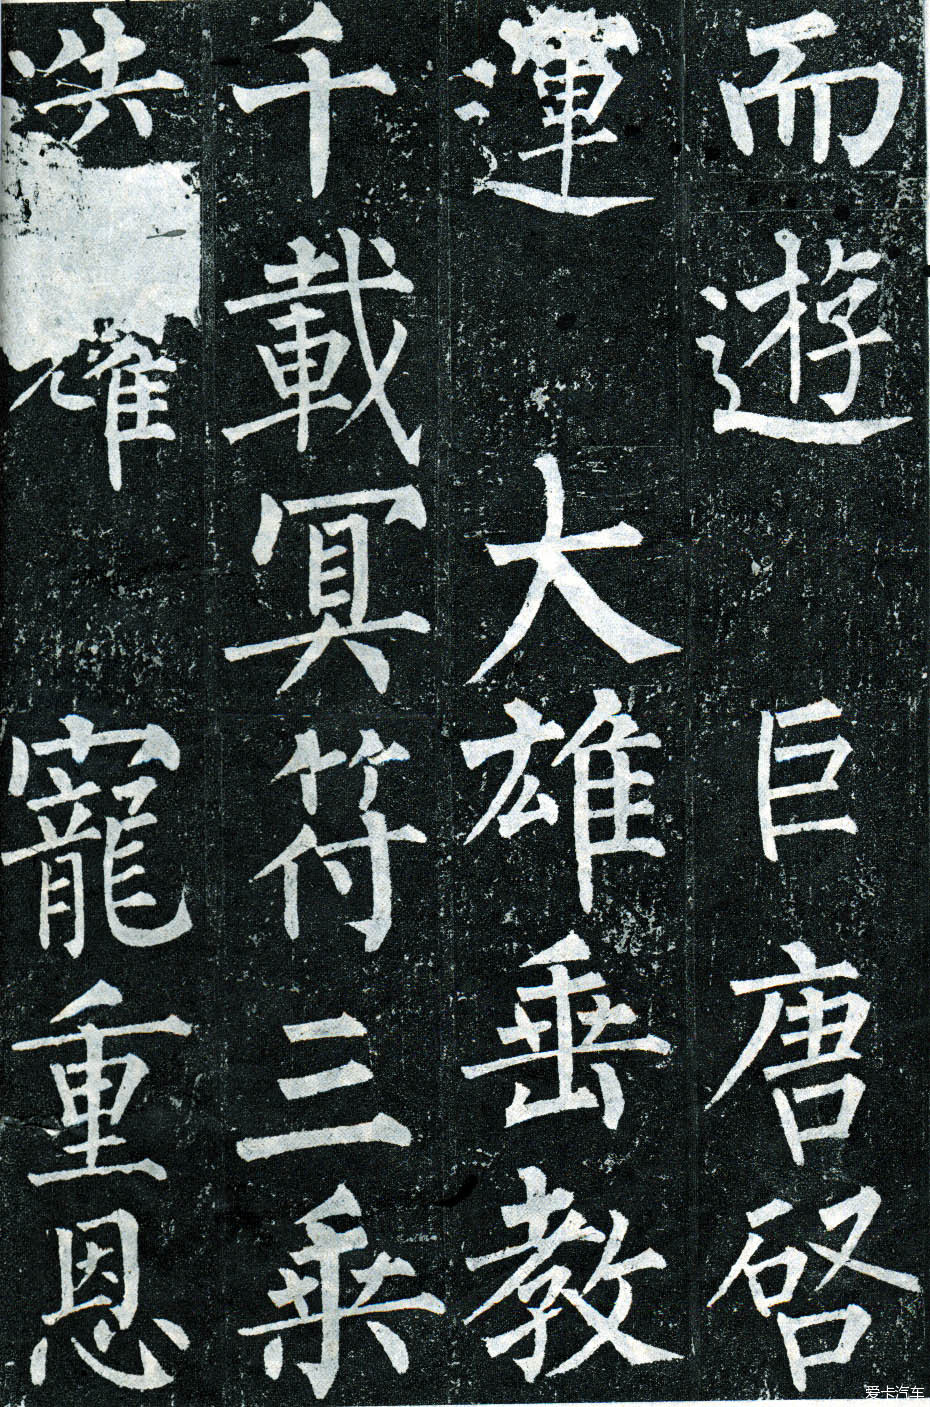 而遊巨唐啓
運大雄垂教
千載冥符三乘
耀寵重恩
爱卡汽车